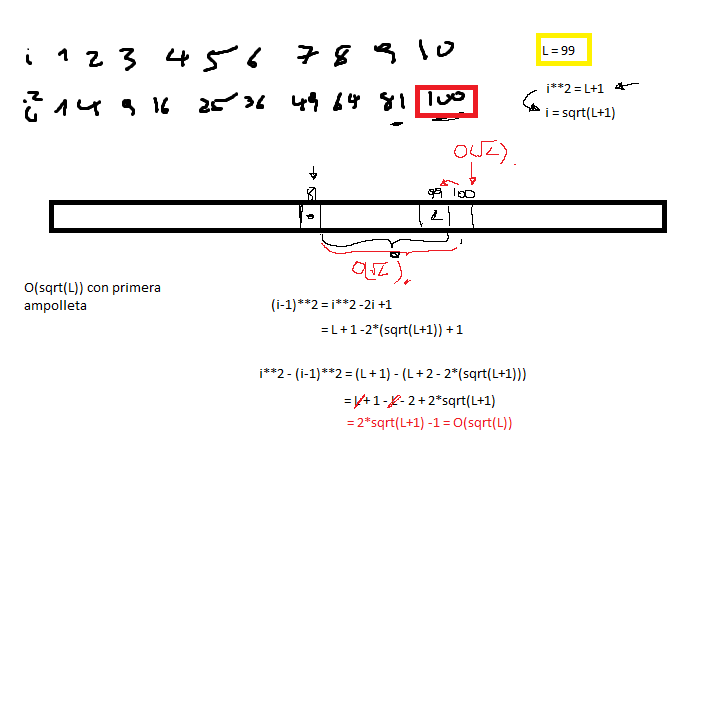 i 1 2 3 4 5 6 7 8 9 10
L = 99
i² 1 4 9 16 25 36 49 64 81 100
i**2 = L+1
i = sqrt(L+1)
O(√L).
99 100
L
O(√L).
O(sqrt(L)) con primera
ampolleta
(i-1)**2 = i**2 -2i +1
= L + 1 -2*(sqrt(L+1)) + 1
i**2 - (i-1)**2 = (L + 1) - (L + 2 - 2*(sqrt(L+1)))
= L + 1 - L - 2 + 2*sqrt(L+1)
= 2*sqrt(L+1) -1 = O(sqrt(L))